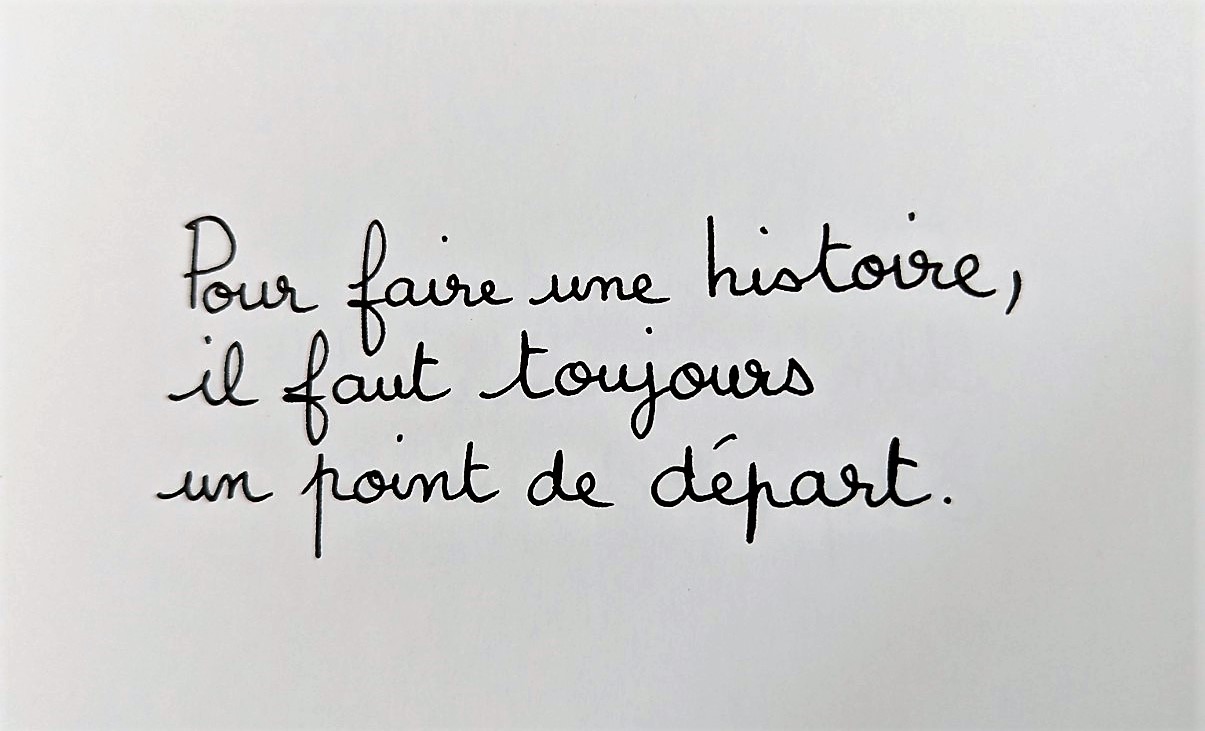 Pour faire une histoire,
il faut toujours
un point de départ.